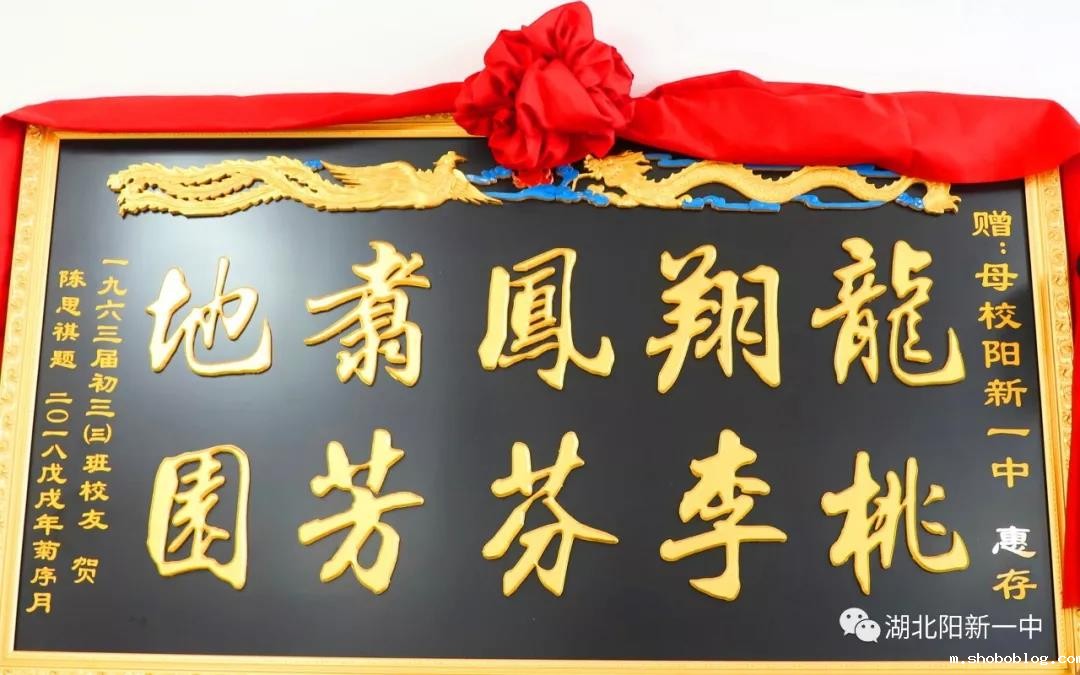 赠:母校阳新一中 惠存
龍翔鳳翥地
桃李芬芳園
一九六三届初三(三)班校友 贺
陈思祺题 二〇一八戊戌年菊序月
湖北阳新一中
m.shoboblog.com